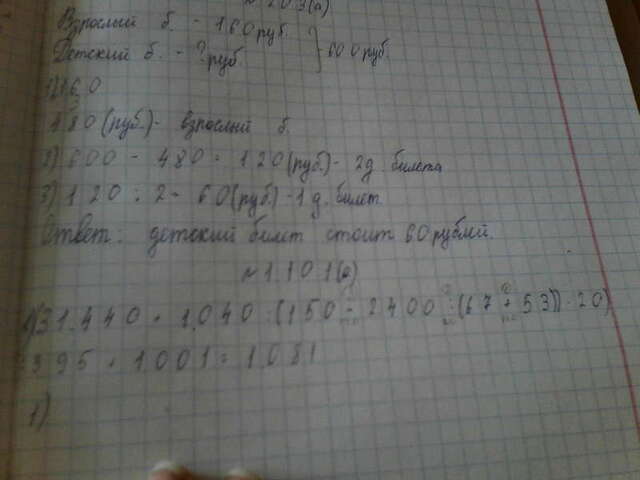 № 203(а)
Взрослый б. - 160 руб.
Детский б. - ? руб. } 600 руб.
1) 160
3
480 (руб.) - взрослый б.
2) 600 - 480 = 120 (руб.) - 2 д. билета
3) 120 : 2 = 60 (руб.) - 1 д. билет
Ответ: детский билет стоит 60 рублей.
№ 1.101(а)
31.440 + 1.040 : (150 - 2400 : (67 + 53)) · 20)
395 + 1001 = 1.081
1)